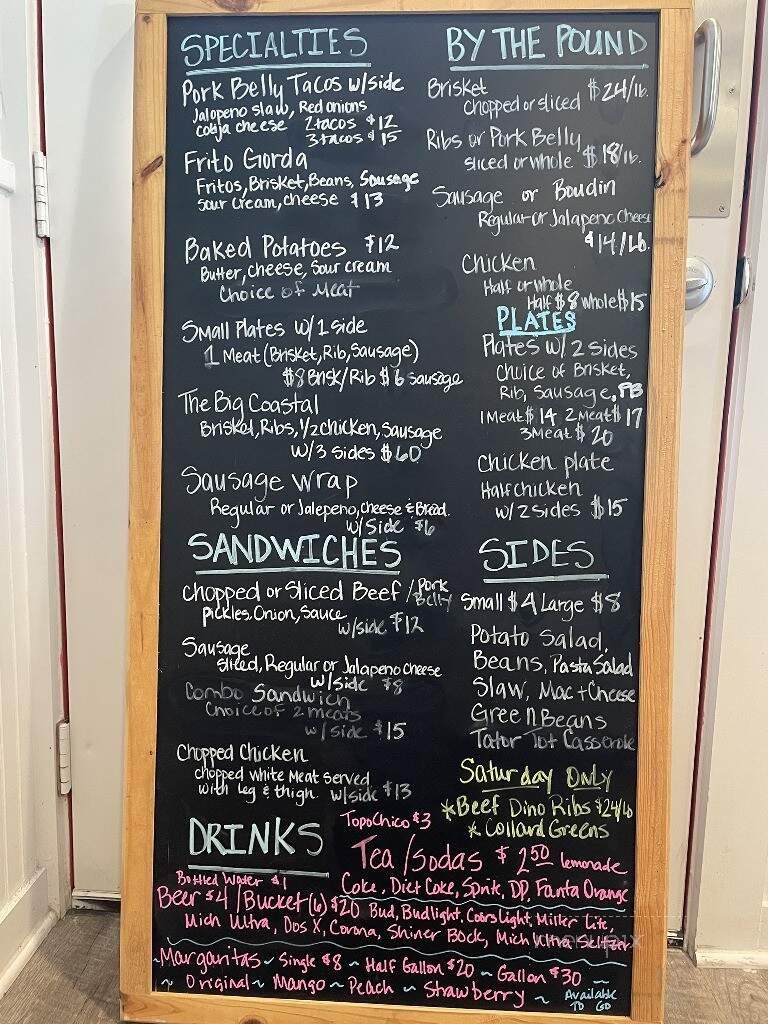 SPECIALTIES
Pork Belly Tacos w/side
Jalapeno slaw, Red onions
cotija cheese 2 tacos $12
3 tacos $15
Frito Gorda
Fritos, Brisket, Beans, Sausage
Sour cream, cheese $13
Baked Potatoes $12
Butter, cheese, Sour cream
Choice of Meat
Small Plates w/1 side
1 Meat (Brisket, Rib, Sausage)
$8 Brisk/Rib $6 sausage
The Big Coastal
Brisket, Ribs, 1/2 chicken, Sausage
w/3 sides $60
Sausage Wrap
Regular or Jalepeno, cheese & Bread
w/side $6
SANDWICHES
Chopped or Sliced Beef / Pork Belly
Pickles, Onion, Sauce
w/side $12
Sausage
Sliced, Regular or Jalapeno cheese
w/side $8
Combo Sandwich
Choice of 2 meats
w/side $15
Chopped Chicken
chopped white Meat served
with leg & thigh. w/side $13
BY THE POUND
Brisket $24/lb.
chopped or sliced
Ribs or Pork Belly
sliced or whole $18/lb.
Sausage or Boudin
Regular or Jalapeno Cheese
$14/Lb.
Chicken
Half or whole
Half $8 whole $15
PLATES
Plates w/ 2 sides
Choice of Brisket,
Rib, Sausage, PB
1 Meat $14 2 Meat $17
3 Meat $20
Chicken plate
Half chicken
w/ 2 sides $15
SIDES
Small $4 Large $8
Potato Salad,
Beans, Pasta Salad
Slaw, Mac + Cheese
Green Beans
Tator Tot Casserole
Saturday Only
*Beef Dino Ribs $24/lb
* Collard Greens
DRINKS
TopoChico $3
Tea / Sodas $2.50 lemonade
Coke, Diet Coke, Sprite, DP, Fanta Orange
Bottled Water $1
Beer $4 / Bucket (6) $20 Bud, Budlight, Coors Light, Miller Lite,
Mich Ultra, Dos X, Corona, Shiner Bock, Mich Ultra Seltzer
~Margaritas ~ Single $8 ~ Half Gallon $20 ~ Gallon $30 ~
~ Original ~ Mango ~ Peach ~ Strawberry ~ Available
TO GO